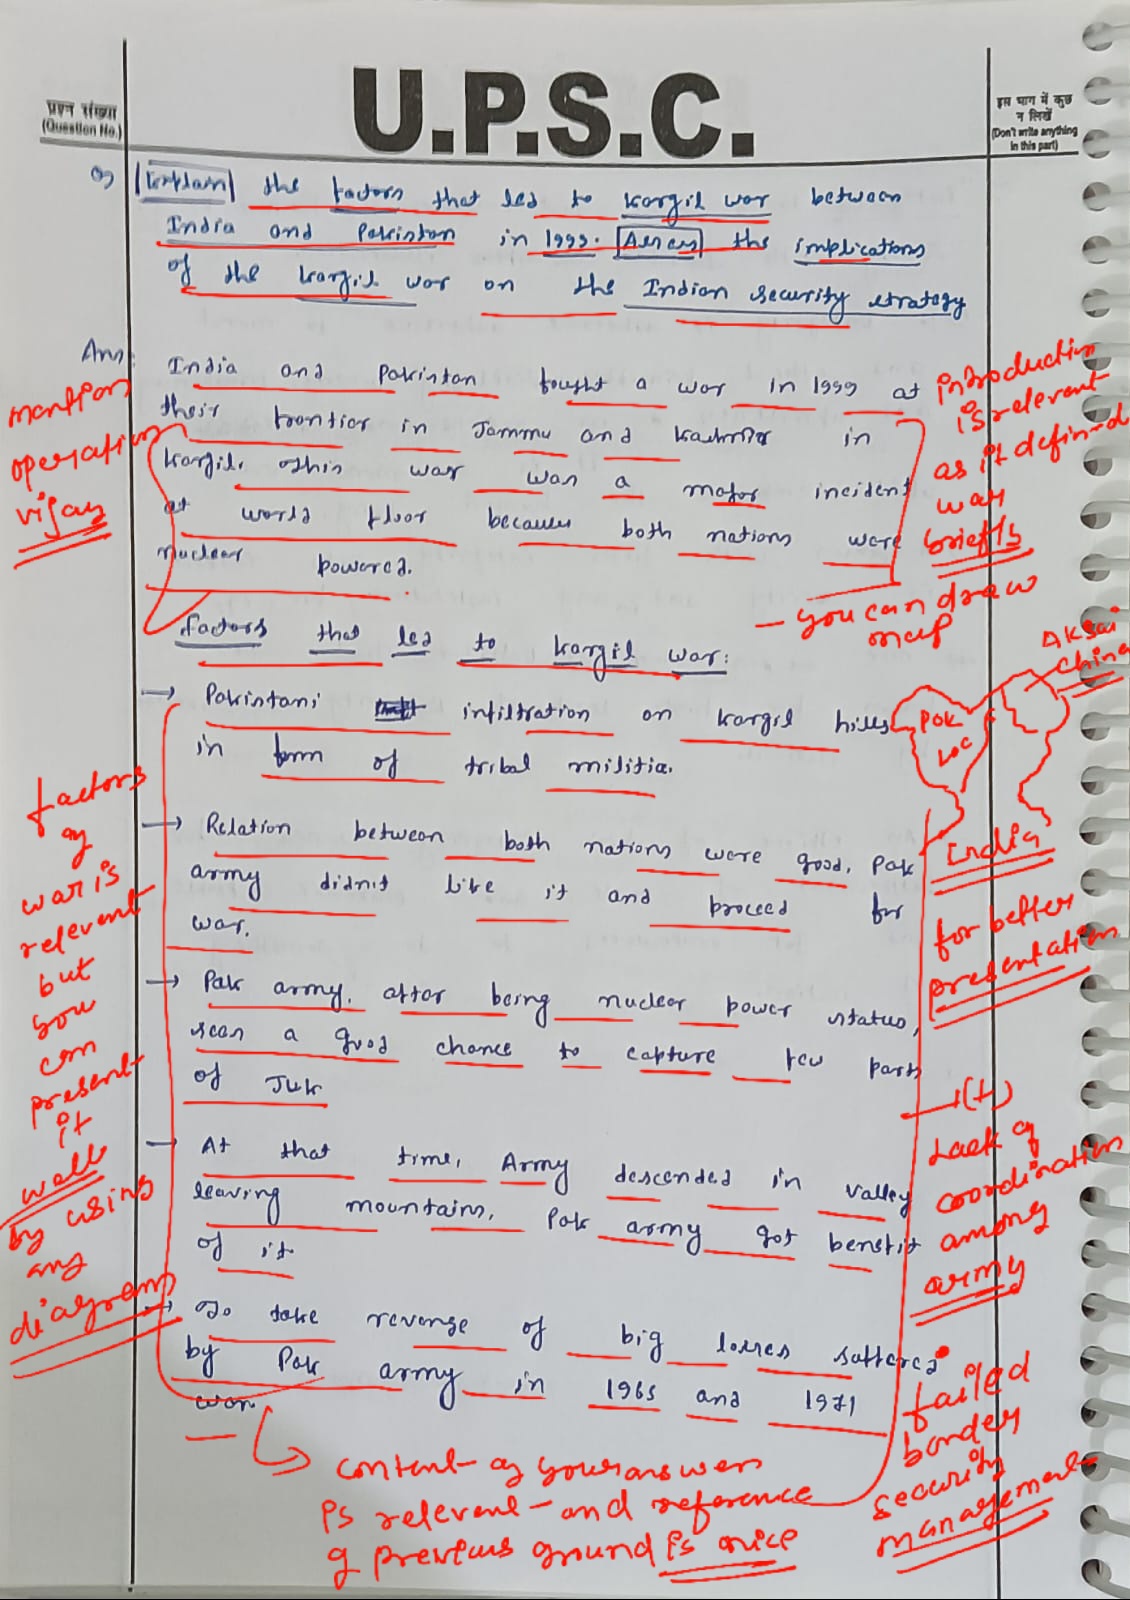 U.P.S.C.
प्रश्न संख्या
(Question No.)
इस भाग में कुछ
न लिखें
(Don't write anything
in this part)
Q) Explain the factors that led to kargil war between
India and Pakistan in 1999. Assess the implications
of the kargil war on the Indian security strategy
Ans:
India and Pakistan fought a war in 1999 at
their frontier in Jammu and Kashmir in
kargil. This war was a major incident
at world floor because both nations were
nuclear powered.
mention
operation
vijay
introduction
is relevent
as it defined
war
briefly
- you can draw
map
Factors that led to kargil war:
→ Pakistani infiltration on kargil hills
in form of tribal militia.
→ Relation between both nations were good, Pak
army didn't like it and proceed for
war.
→ Pak army, after being nuclear power status,
seen a good chance to capture few parts
of J&K
→ At that time, Army descended in valley
leaving mountains, Pak army got benefit
of it
→ To take revenge of big losses suffered
by Pak army in 1965 and 1971
war.
Aksai
China
POK
LOC
India
for better
presentation
factors
of
war is
relevent
but
you
can
present
it
well
by using
any
diagram
(+)
Lack of
coordination
among
army
failed
border
security
management
content of your answer
is relevent and reference
of previous ground is nice